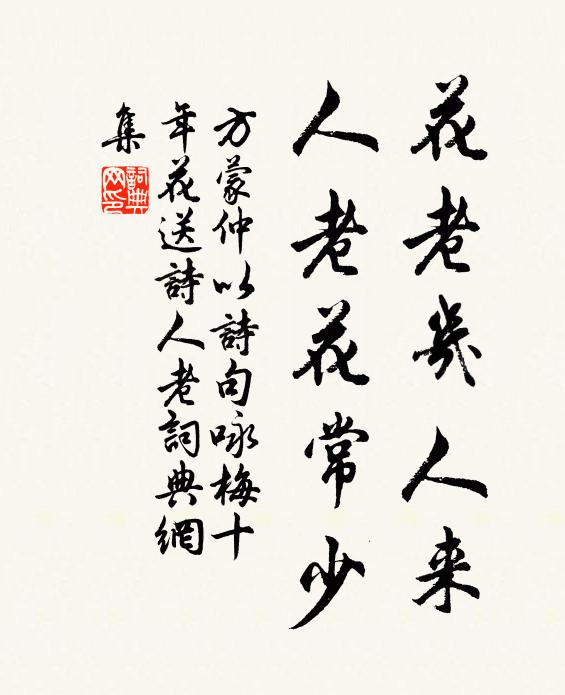 花老幾人来
人老花常少
方蒙仲以詩句咏梅十
年花送詩人老詞典網
集
詞典
网印